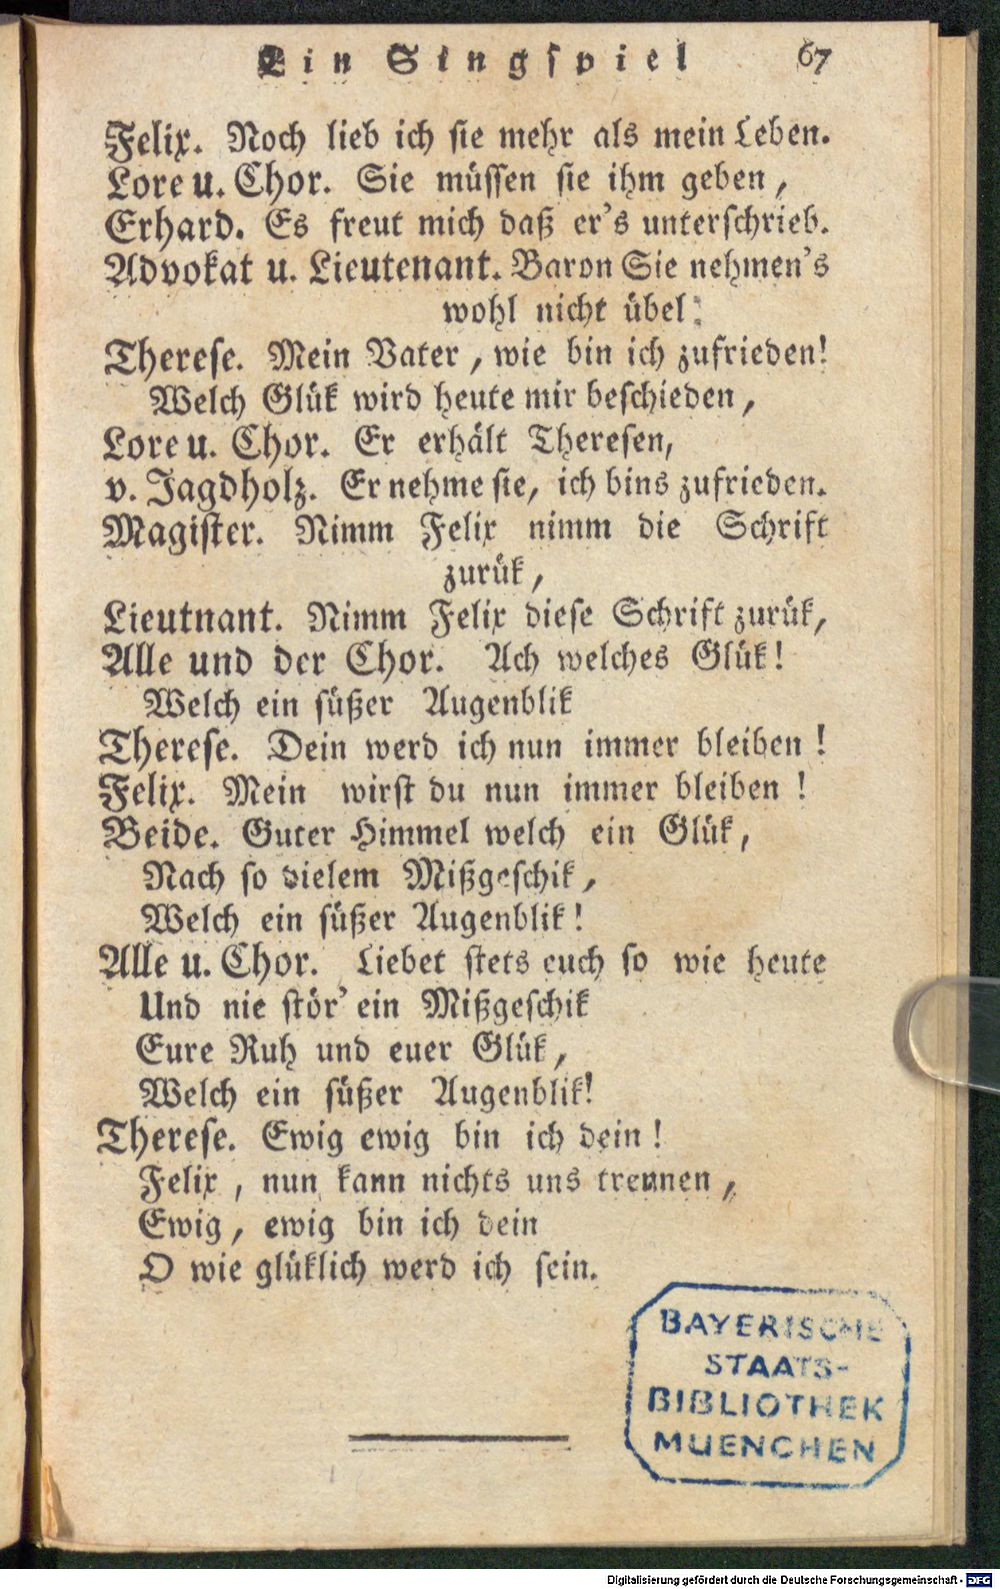 Ein Singspiel 67
Felix. Noch lieb ich sie mehr als mein Leben.
Lore u. Chor. Sie müssen sie ihm geben,
Erhard. Es freut mich daß er's unterschrieb.
Advokat u. Lieutenant. Baron Sie nehmen's
wohl nicht übel:
Therese. Mein Vater, wie bin ich zufrieden!
Welch Glük wird heute mir beschieden,
Lore u. Chor. Er erhält Theresen,
v. Jagdholz. Er nehme sie, ich bins zufrieden.
Magister. Nimm Felix nimm die Schrift
zurük,
Lieutnant. Nimm Felix diese Schrift zurük,
Alle und der Chor. Ach welches Glük!
Welch ein süßer Augenblik
Therese. Dein werd ich nun immer bleiben!
Felix. Mein wirst du nun immer bleiben!
Beide. Guter Himmel welch ein Glük,
Nach so vielem Mißgeschik,
Welch ein süßer Augenblik!
Alle u. Chor. Liebet stets euch so wie heute
Und nie stör' ein Mißgeschik
Eure Ruh und euer Glük,
Welch ein süßer Augenblik!
Therese. Ewig ewig bin ich dein!
Felix, nun kann nichts uns trennen,
Ewig, ewig bin ich dein
O wie glüklich werd ich sein.
BAYERISCHE
STAATS-
BIBLIOTHEK
MUENCHEN
Digitalisierung gefördert durch die Deutsche Forschungsgemeinschaft - DFG